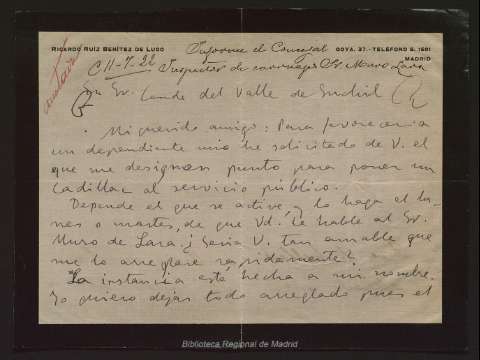 RICARDO RUIZ BENÍTEZ DE LUGO
GOYA, 37.-TELÉFONO S. 1681
MADRID
Informe el Concejal
C 11-7-22 Inspector de carruajes Sr Muro Lara
Sr. Conde del Valle de Suchil
Mi querido amigo: Para favorecer a
un dependiente mio he solicitado de V. el
que me designen punto para poner un
Cadillac al servicio público.
Depende el que se active y lo haga el lu-
nes o martes, de que Vd. le hable al Sr.
Muro de Lara. ¿ Seria V. tan amable que
me lo arreglare rapidamente?
La instancia está hecha a mi nombre.
Yo quiero dejar todo arreglado pues el
Biblioteca Regional de Madrid